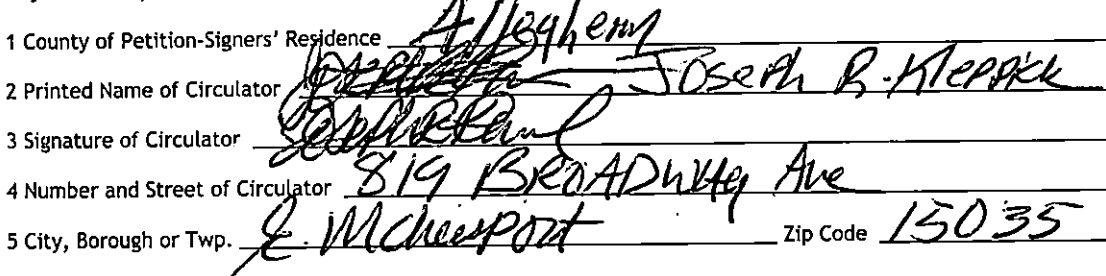 1 County of Petition-Signers' Residence Allegheny
2 Printed Name of Circulator Joseph R. Kleppick
3 Signature of Circulator
4 Number and Street of Circulator 819 BROADWAy Ave
5 City, Borough or Twp. E. McKeesPort Zip Code 15035